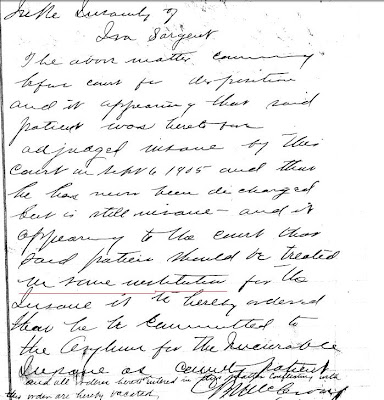 In Re Insanity of
Ira Sargent
The above matter coming
before court for disposition
and it appearing that said
patient was heretofore
adjudged insane by this
court in Sept 6 1905 and that
he has now been discharged
but is still insane - and it
appearing to the court that
said patient should be treated
in some institution for the
Insane it is hereby ordered
that he be committed to
the Asylum for the Incurable
Insane as county patient
and all orders heretofore entered in this matter conflicting with
this order are hereby vacated.